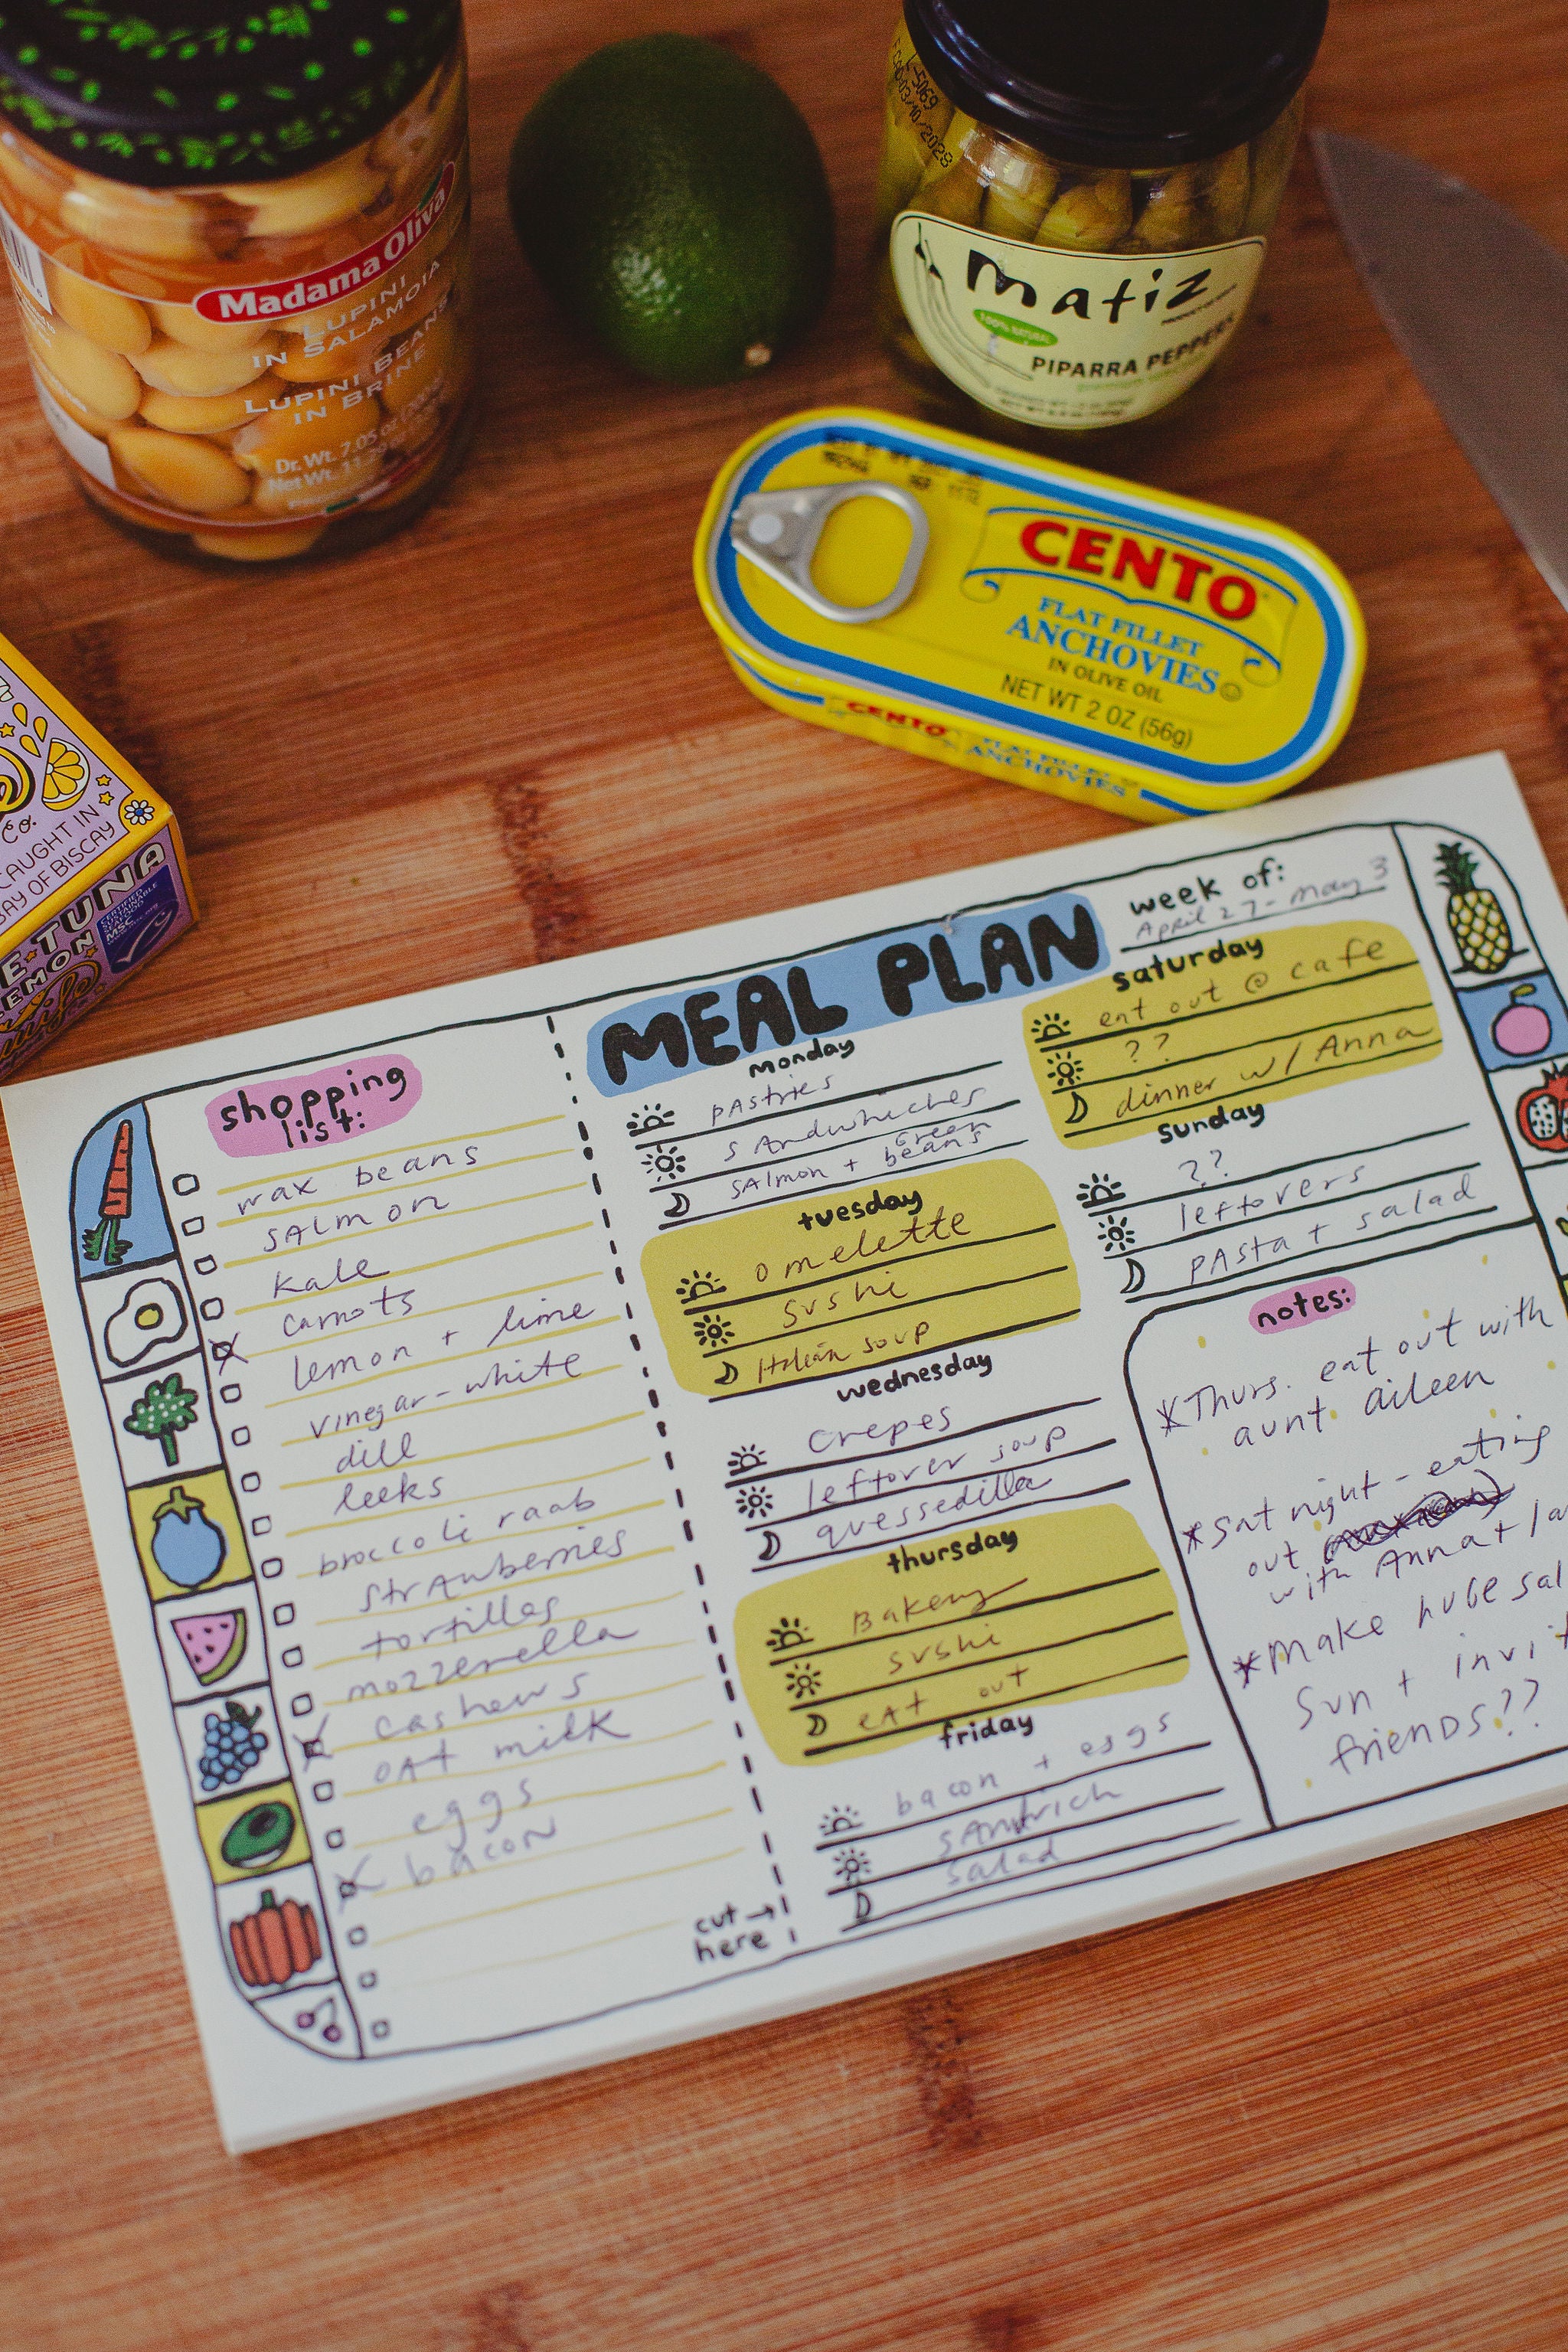 Madama Oliva
LUPINI
IN SALAMOIA
LUPINI BEANS
IN BRINE
Dr. Wt. 7.05 oz
Net Wt. 11.
L-5069
03/10/2028
matiz
100% NATURAL
PIPARRA PEPPERS
CENTO
FLAT FILLET
ANCHOVIES
IN OLIVE OIL
NET WT 2 OZ (56g)
CENTO
FLAT FILLET
ANCHOVIES
Co.
CAUGHT IN
BAY OF BISCAY
E TUNA
EMON
CERTIFIED
SUSTAINABLE
SEAFOOD
MSC
MEAL PLAN
week of:
April 27 - May 3
shopping
list:
wax beans
salmon
kale
carrots
lemon + lime
vinegar-white
dill
leeks
broccoli raab
strawberries
tortillas
mozzerella
cashews
oat milk
eggs
bacon
cut →
here
monday
pastries
sandwhiches
salmon + green beans
tuesday
omelette
sushi
Italian soup
wednesday
crepes
leftover soup
quessedilla
thursday
Bakery
sushi
eat out
friday
bacon + eggs
sandwich
salad
saturday
eat out @ cafe
??
dinner w/ Anna
sunday
??
leftovers
pasta + salad
notes:
*Thurs. eat out with
aunt aileen
*sat night - eating
out
with Anna +
*make huge
sun +
friends??